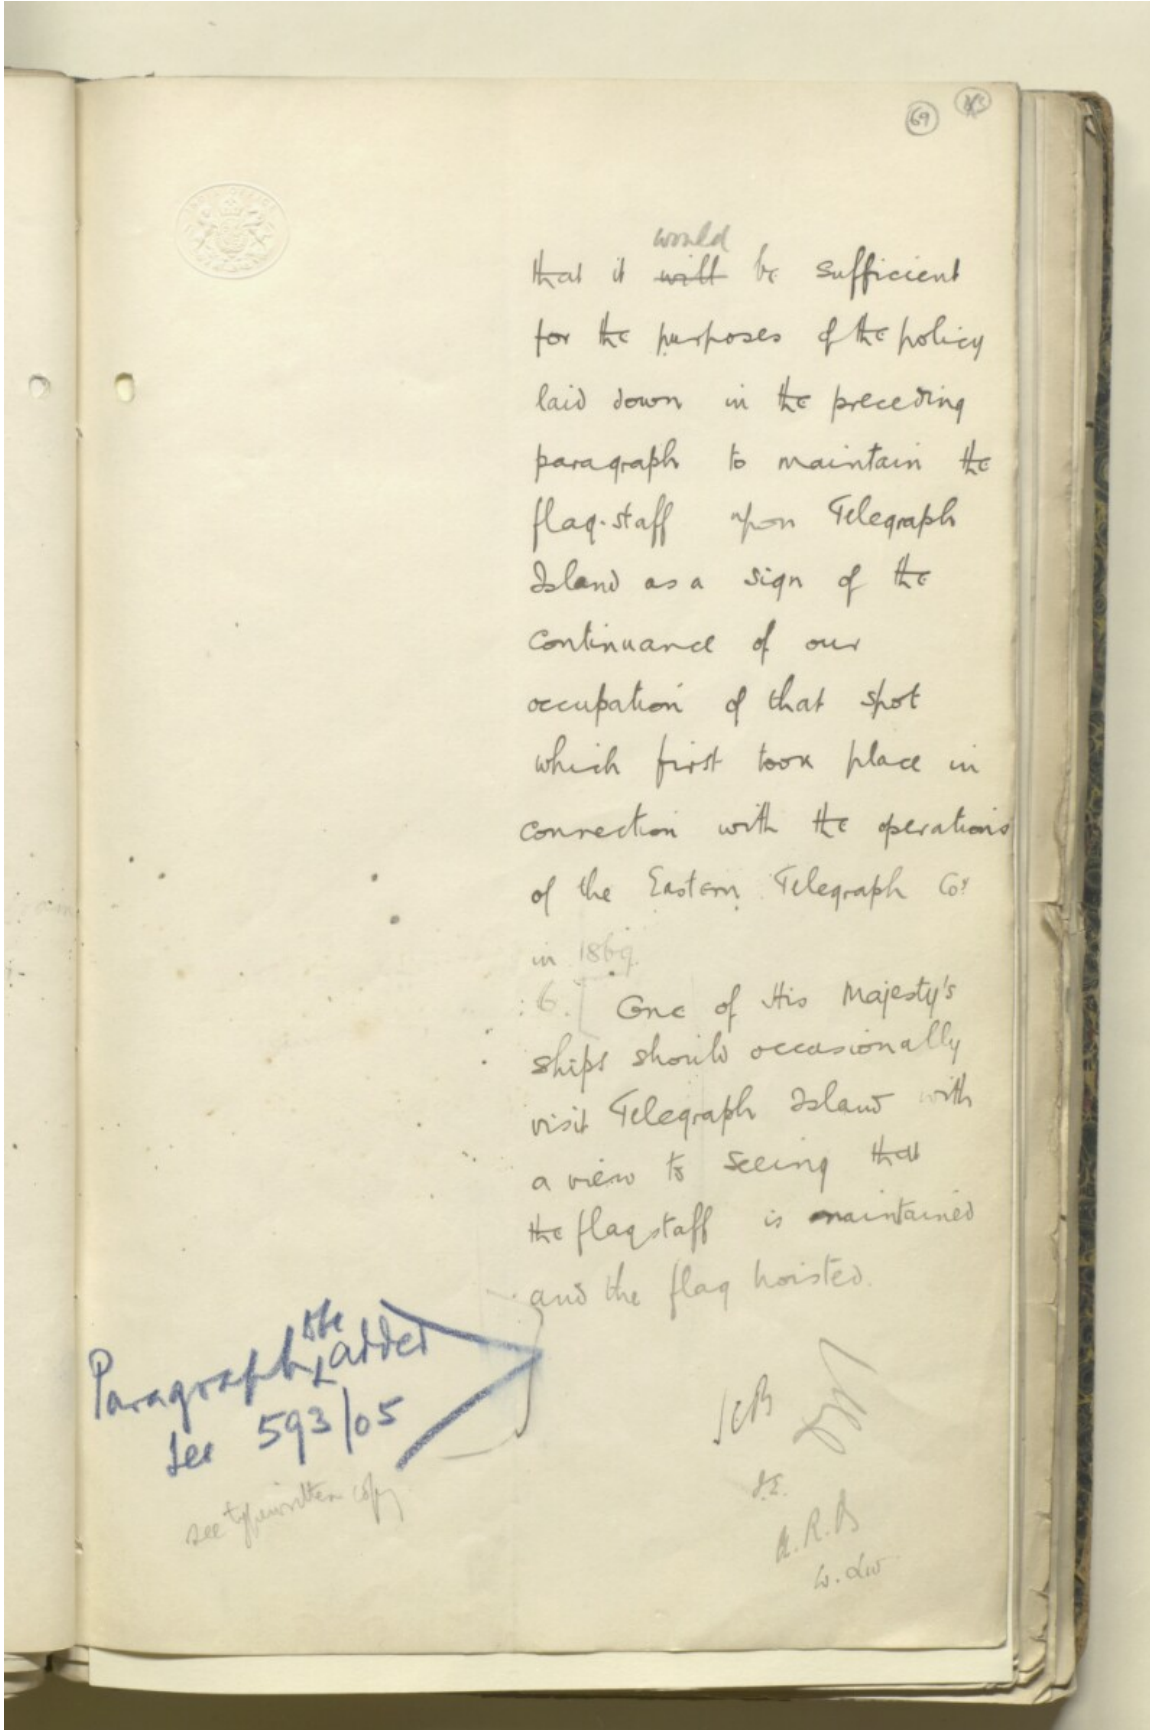 69
would
that it will be sufficient
for the purposes of the policy
laid down in the preceding
paragraph to maintain the
flag-staff upon Telegraph
Island as a sign of the
continuance of our
occupation of that spot
which first took place in
connection with the operations
of the Eastern Telegraph Coy
in 1869.
6. [ One of His Majesty's
ships should occasionally
visit Telegraph Island with
a view to seeing that
the flagstaff is maintained
and the flag hoisted.
Paragraph the added
see 593/05
see typewritten copy
A.R.B